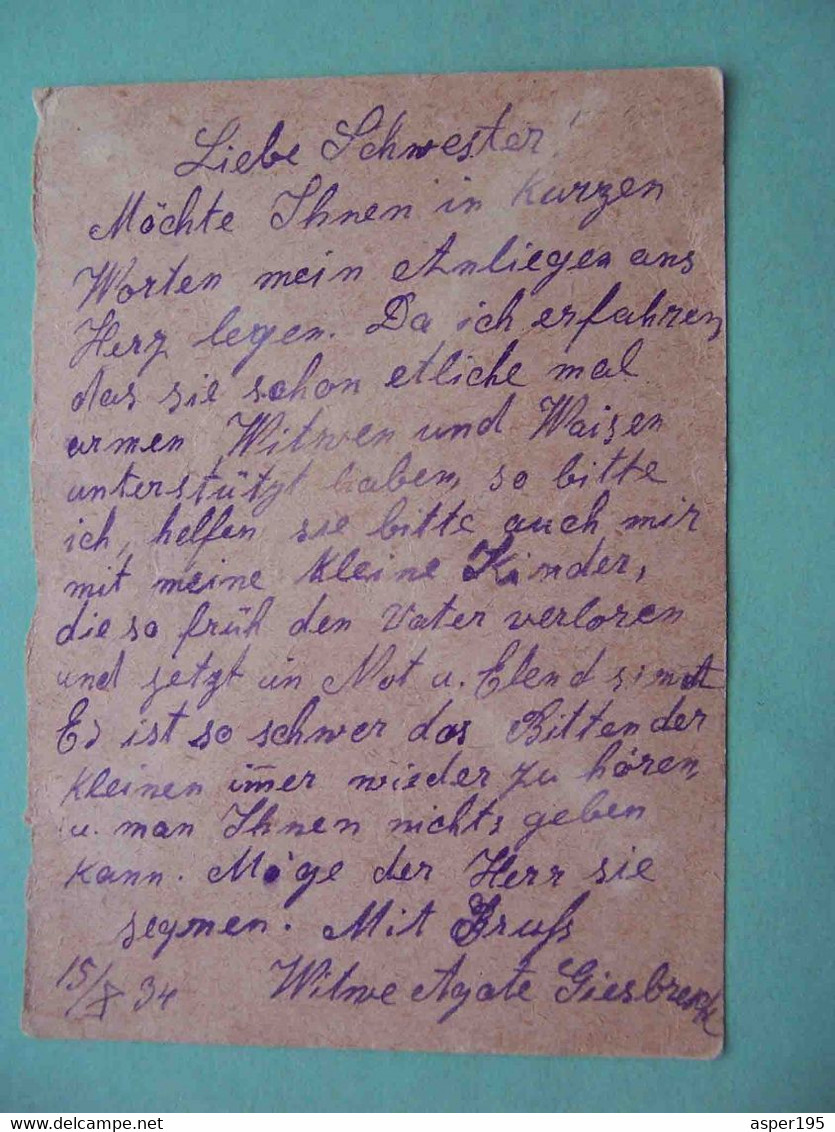 Liebe Schwester!
Möchte Ihnen in Kurzen
Worten mein Anliegen ans
Herz legen. Da ich erfahren,
das sie schon etliche mal
armen Witwen und Waisen
unterstützt haben, so bitte
ich, helfen sie bitte auch mir
mit meine Kleine Kinder,
die so früh den Vater verloren
und jetzt in Not u. Elend sind
Es ist so schwer das Bitten der
Kleinen im̅er wieder zu hören,
u. man Ihnen nichts geben
Kann. Möge der Herr sie
segnen. Mit Gruß
15/X 34 Witwe Agate Giesbrecht
delcampe.net
asper195